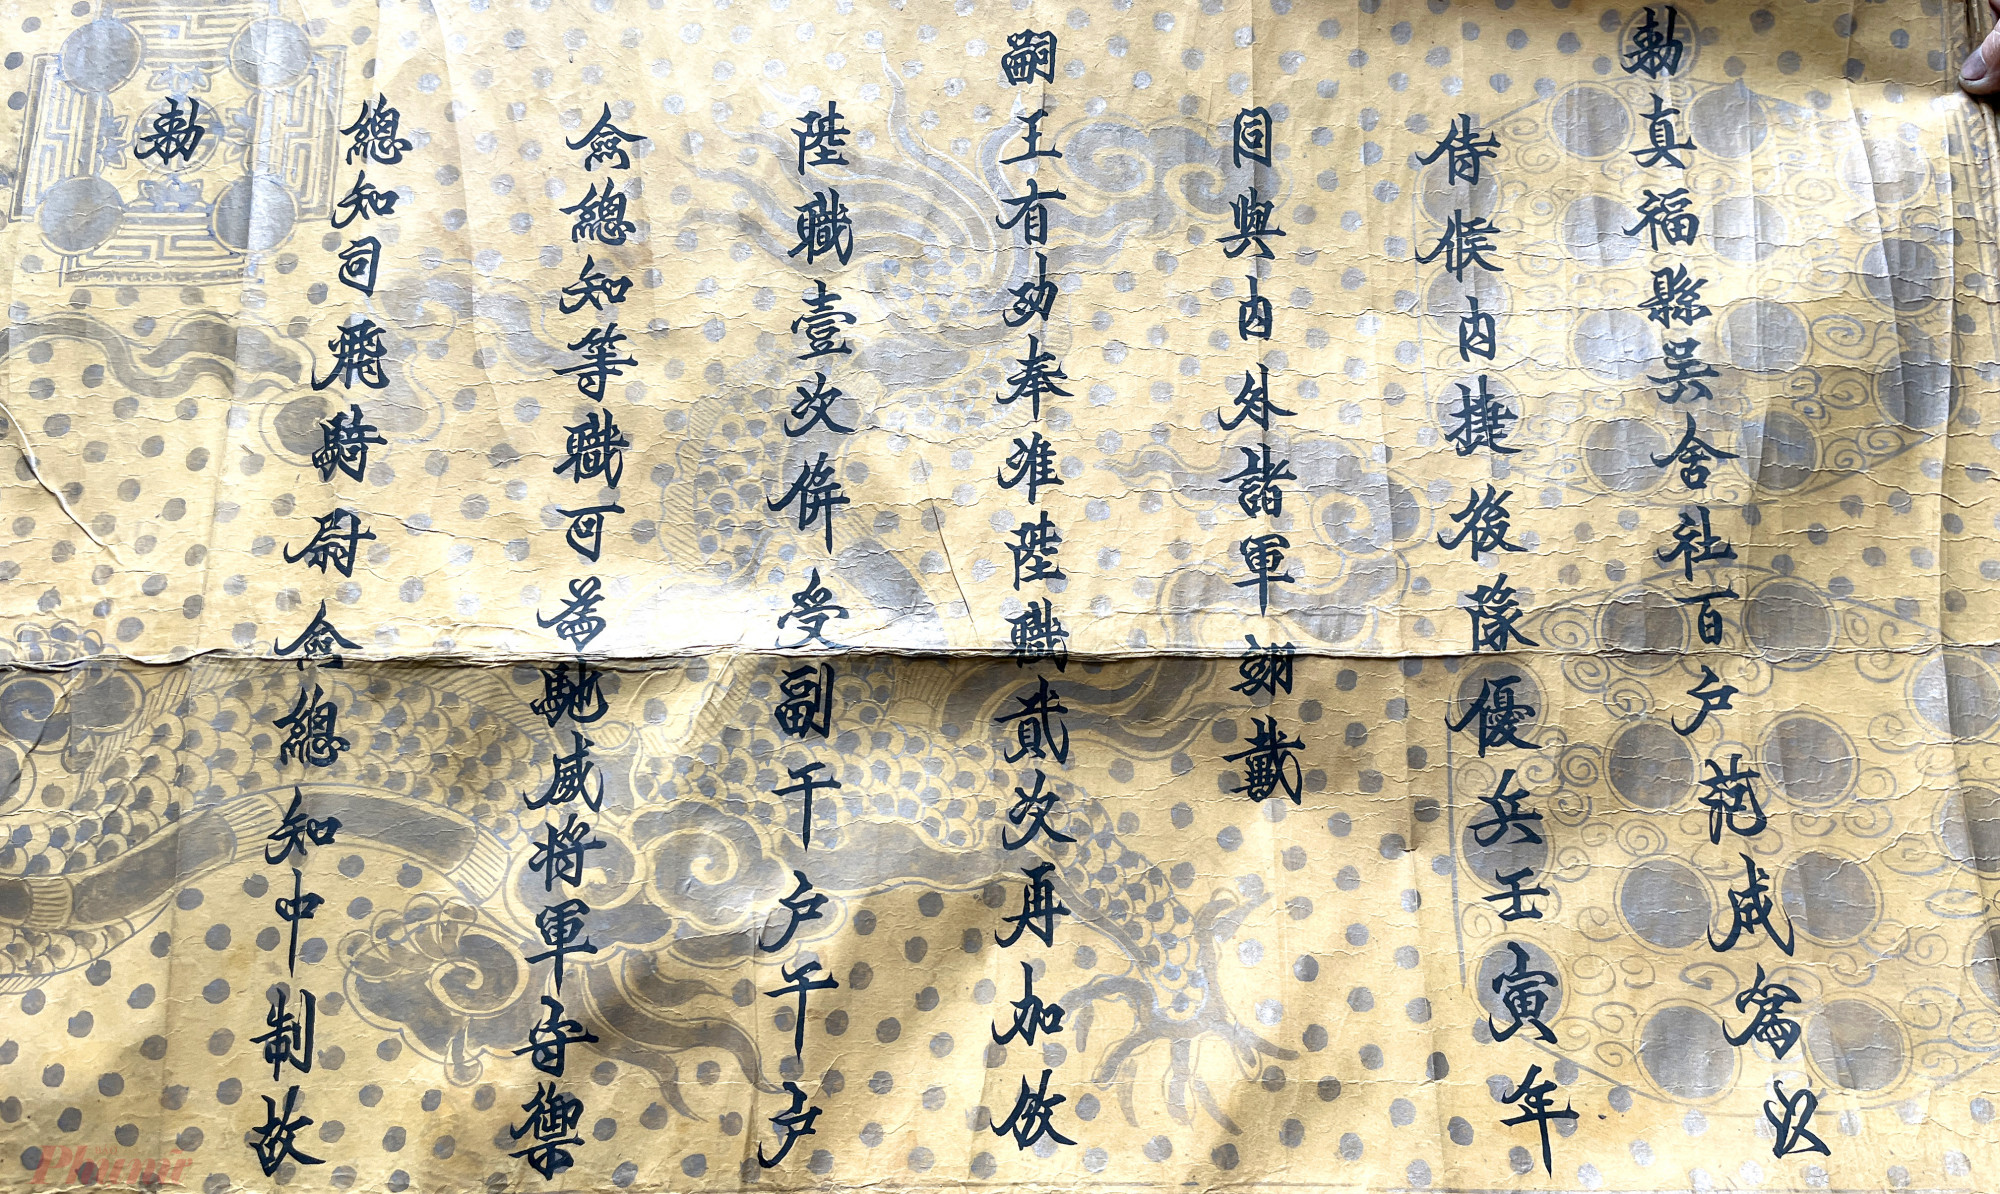 勅真福縣吳舍社百户范成爲以
侍候内捷後隊優兵壬寅年
同與内外諸軍翊戴
嗣王有功奉准陞職貳次再加敘
陞職壹次併受副千户千户
僉總知等職可爲馳威將軍守禦
總知司飛騎尉僉總知中制故
勅
Phunữ